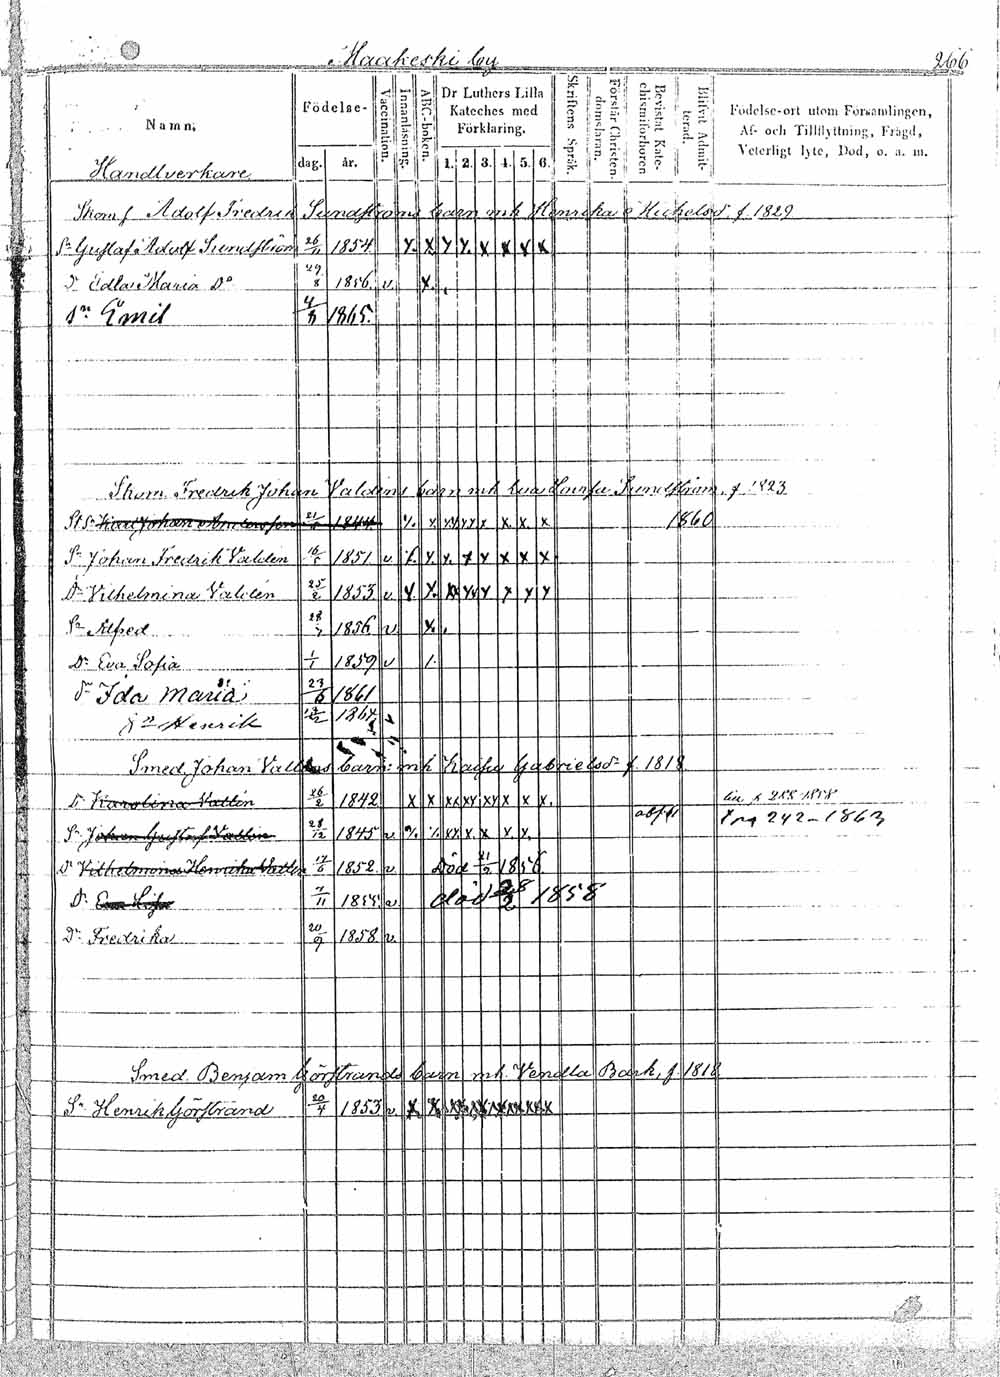 Maakeski by 266
Namn.
Födelse-
dag. år.
Vaccination.
Innanläsning.
ABC-boken.
Dr Luthers Lilla Kateches med Förklaring.
1. 2. 3. 4. 5. 6.
Skriftens Språk.
Förstår Christendomsläran.
Bevistat Katechismiförhören
Blifvit Admitterad.
Födelse-ort utom Församlingen, Af- och Tillflyttning, Frägd, Veterligt lyte, Död, o. a. m.
Handtverkare
Skom. f Adolf Fredrik Sundströms barn mh Henrika Michelsdr f. 1829
Sn Gustaf Adolf Sundström 26/11 1854 x x x x x x x x
Dr Edla Maria Do 29/8 1856 v x
Sn Emil 4/8 1865.
Skom. Fredrik Johan Valdens barn mh Eva Lovisa Sundström, f. 1823
St Sn Karl Johan 1844 x x x x x x x 1860
Sn Johan Fredrik Valdén 1851 v x x x x x x x
Dr Vilhelmina Valdén 25/2 1853 v x x xx xx x x x x
Sn Alfred 28/7 1856 v x
Dr Eva Sofia 1/1 1859 v
Dr Ida Maria 23/6 1861
Sn Henrik 1864
Smed Johan Vallens barn mh Kaisa Gabrielsdr f. 1818
Dr Karolina Vallin 26/2 1842 x x xx xx xx x x x
Sn Johan Gustaf Vallin 28/12 1845 v xx x x x x 242 - 1863
Dr Vilhelmina Henrika Vallin 1852 v Död 1856
Dr Eva Lisa 7/11 1855 v död 28/2 1858
Dr Fredrika 20/9 1858 v.
Smed. Benjam Görstrands barn mh. Vendla Bark, f. 1818
Sn Henrik Görstrand 20/4 1853 v x x xx xx xx xx xx x